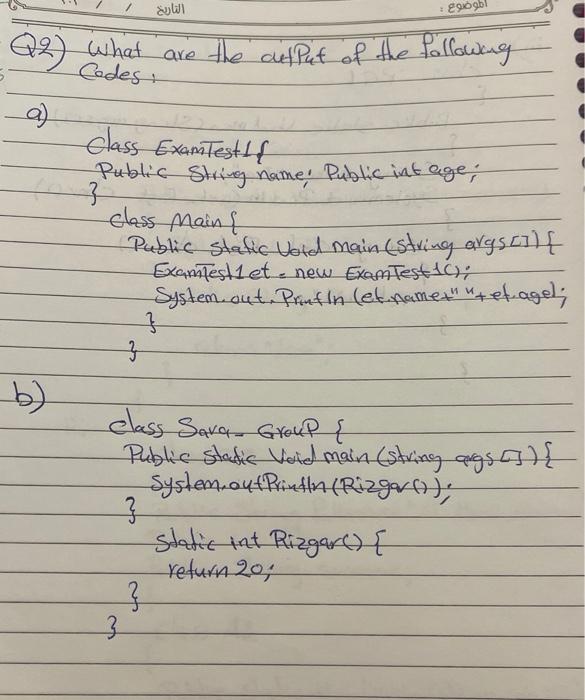 التاريخ / /
الموضوع :
Q2) What are the output of the following
Codes :
a)
Class ExamTest1{
Public String name; Public int age;
}
class Main {
Public static Void main (String args[]) {
ExamTest1 et = new ExamTest1();
System.out.Println (et.name+" "+et.age);
}
}
b)
class Sara_GrouP {
Public static Void main (String args[]) {
System.outPrintln (Rizgar());
}
static int Rizgar() {
return 20;
}
}